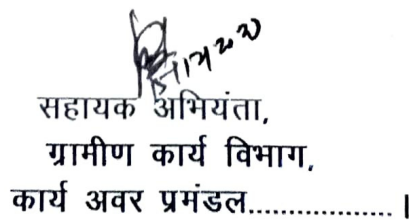 सहायक अभियंता,
ग्रामीण कार्य विभाग,
कार्य अवर प्रमंडल.................... ।